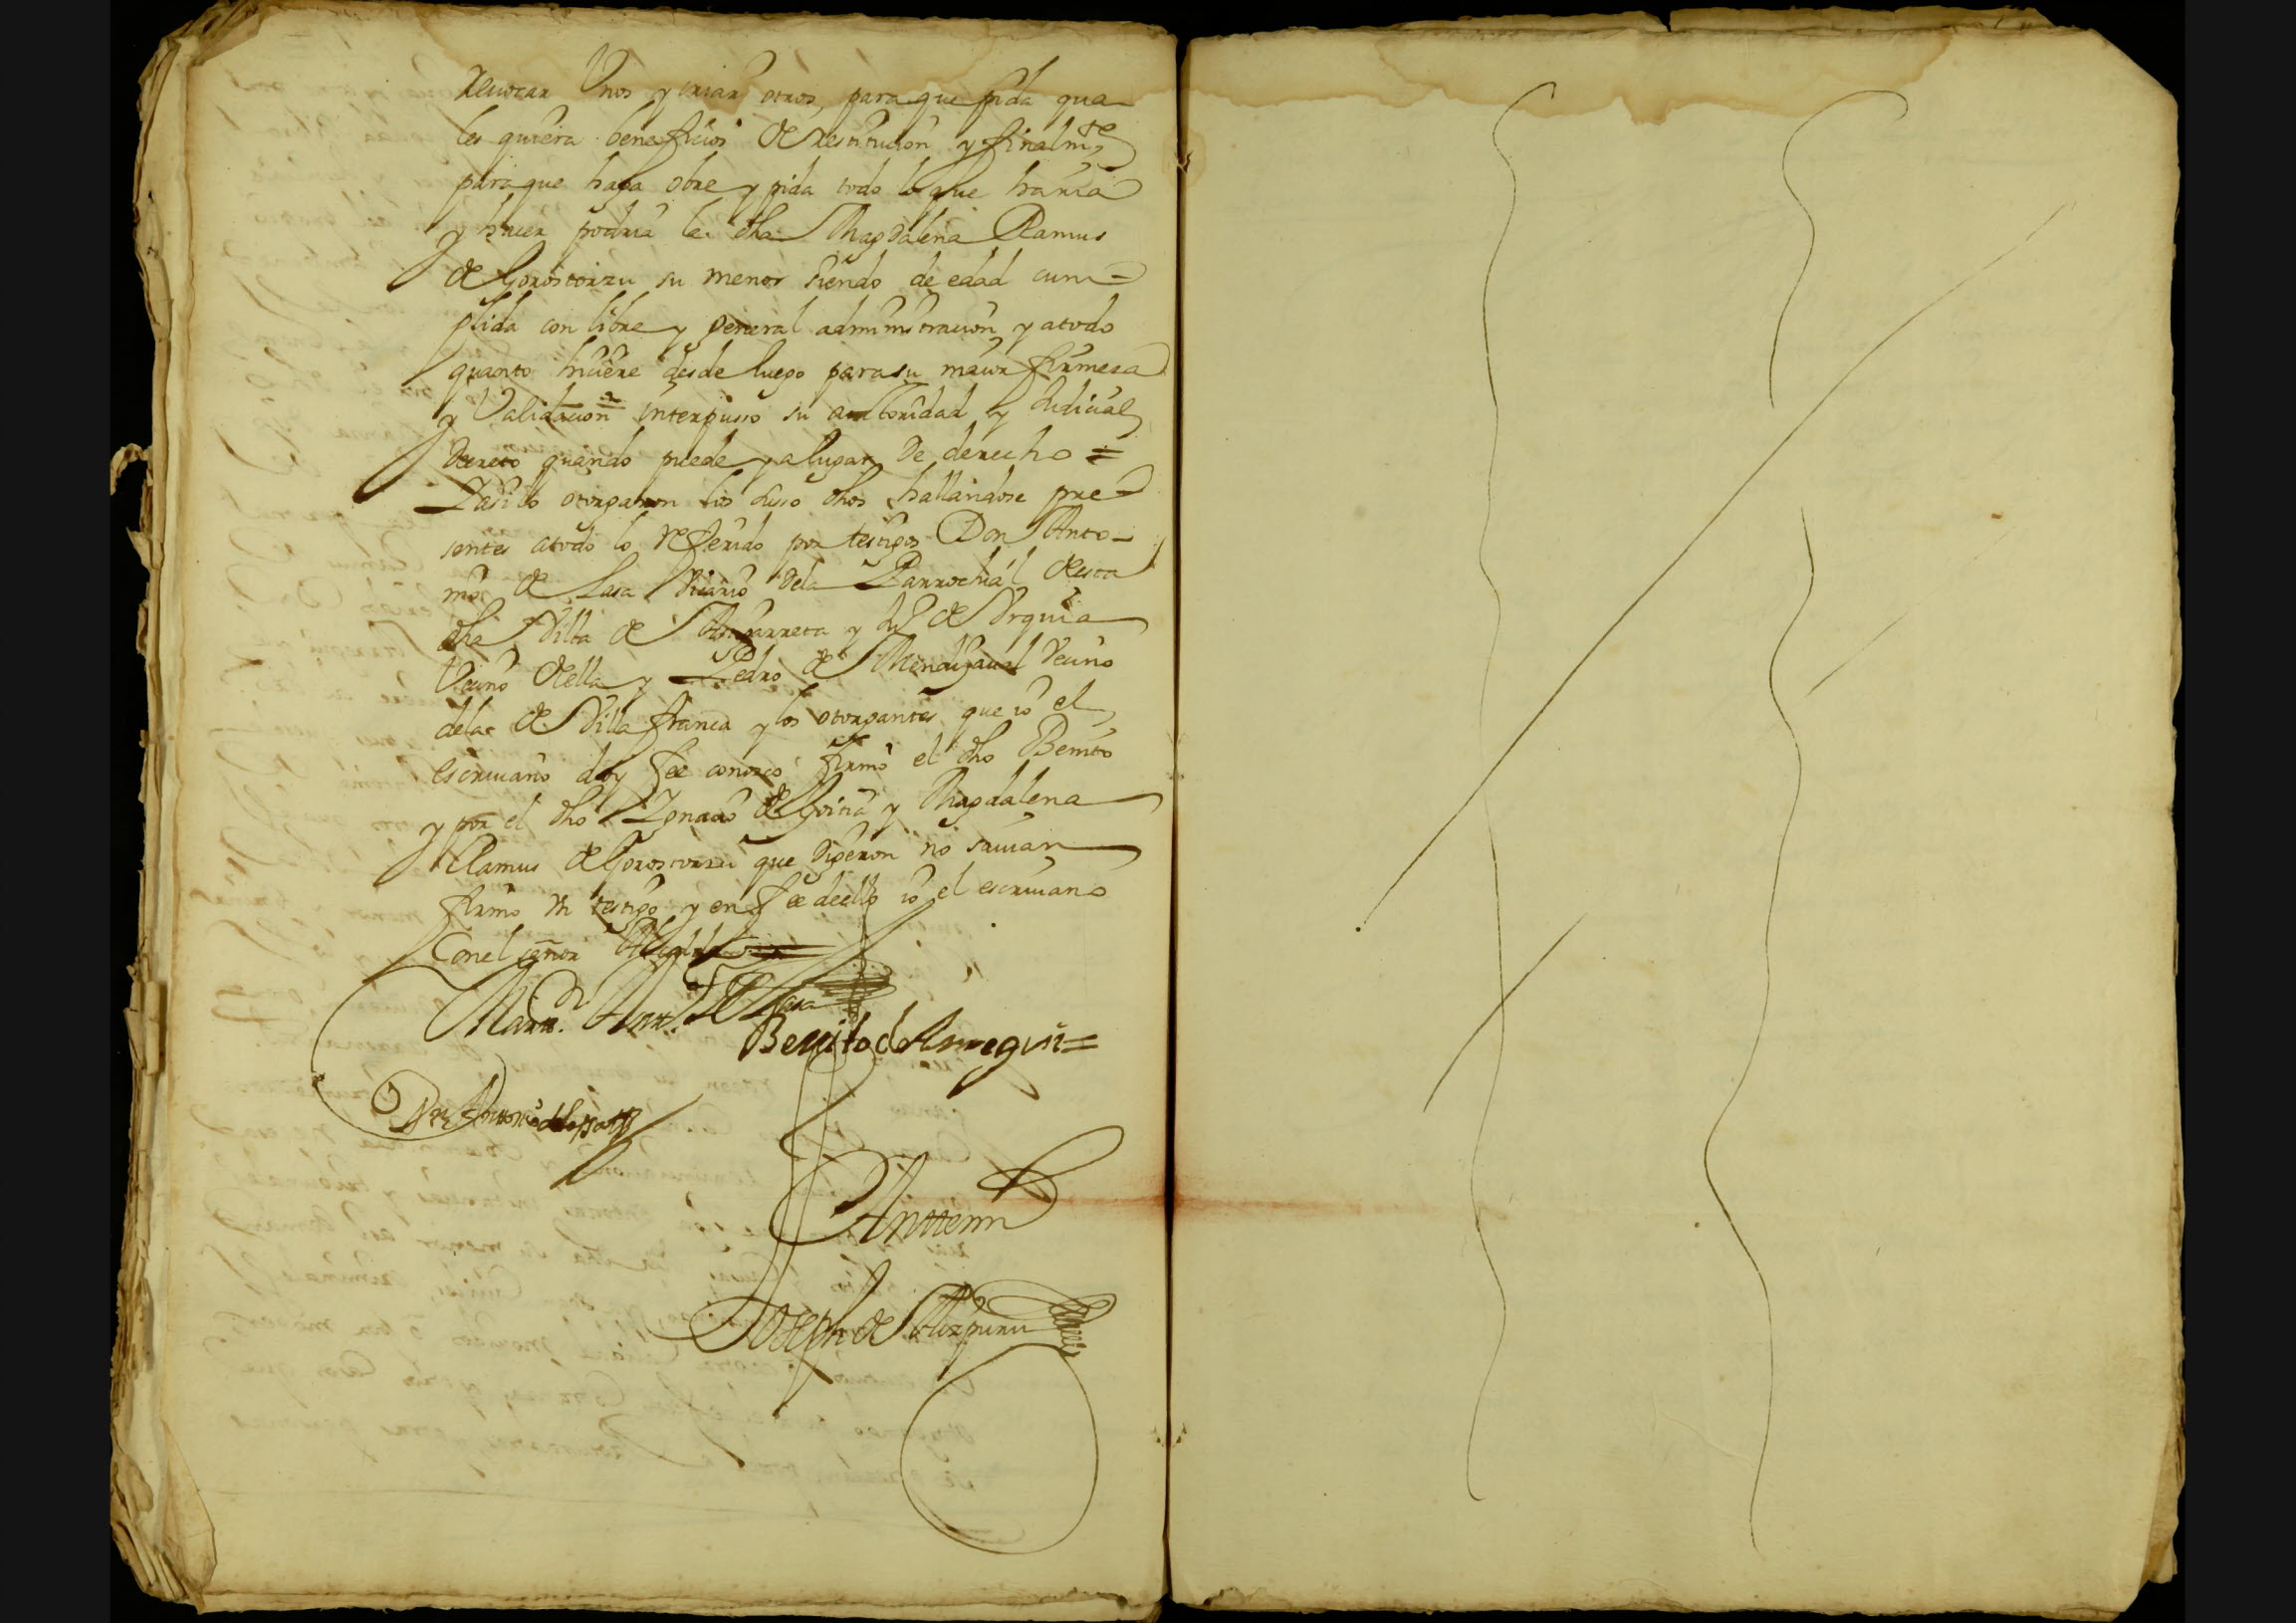 Reuocar Vnos y criar otros, para que pida qua
les quiera beneficios de restitucion y finalmte
para que haga obre y pida todo lo que haria
y hacer podria la dha Magdalena Ramus
de Gorostorzu su menor siendo de edad cum=
plida con libre y general administracion y atodo
quanto hiciere desde luego para su maior firmeza
y Validacion interpuso su autoridad y Judicial
decreto quando puede y a lugar de derecho =
Y asi lo otorgaron los suso dhos hallandose pre=
sentes atodo lo referido por testigos Don Anto-
nio de Lasa Vicario dela Parrochial desta
dha Villa de y de Vrquia
Vecino della y Pedro de Mendizaual Vecino
dela de Villa franca y los otorgantes que io el
escriuano doy fee conozco firmo el dho Benito
y por el dho Ygnacio de Goitia y Magdalena
Ramus de Gorostorzu que digeron no sauian
firmo Vn testigo y en fee deello io el escriuano
Con el señor Alcalde
Lasa
Benito de Amegui=
Don Antonio de Lassa
Anttemi
Joseph de Aizpuru